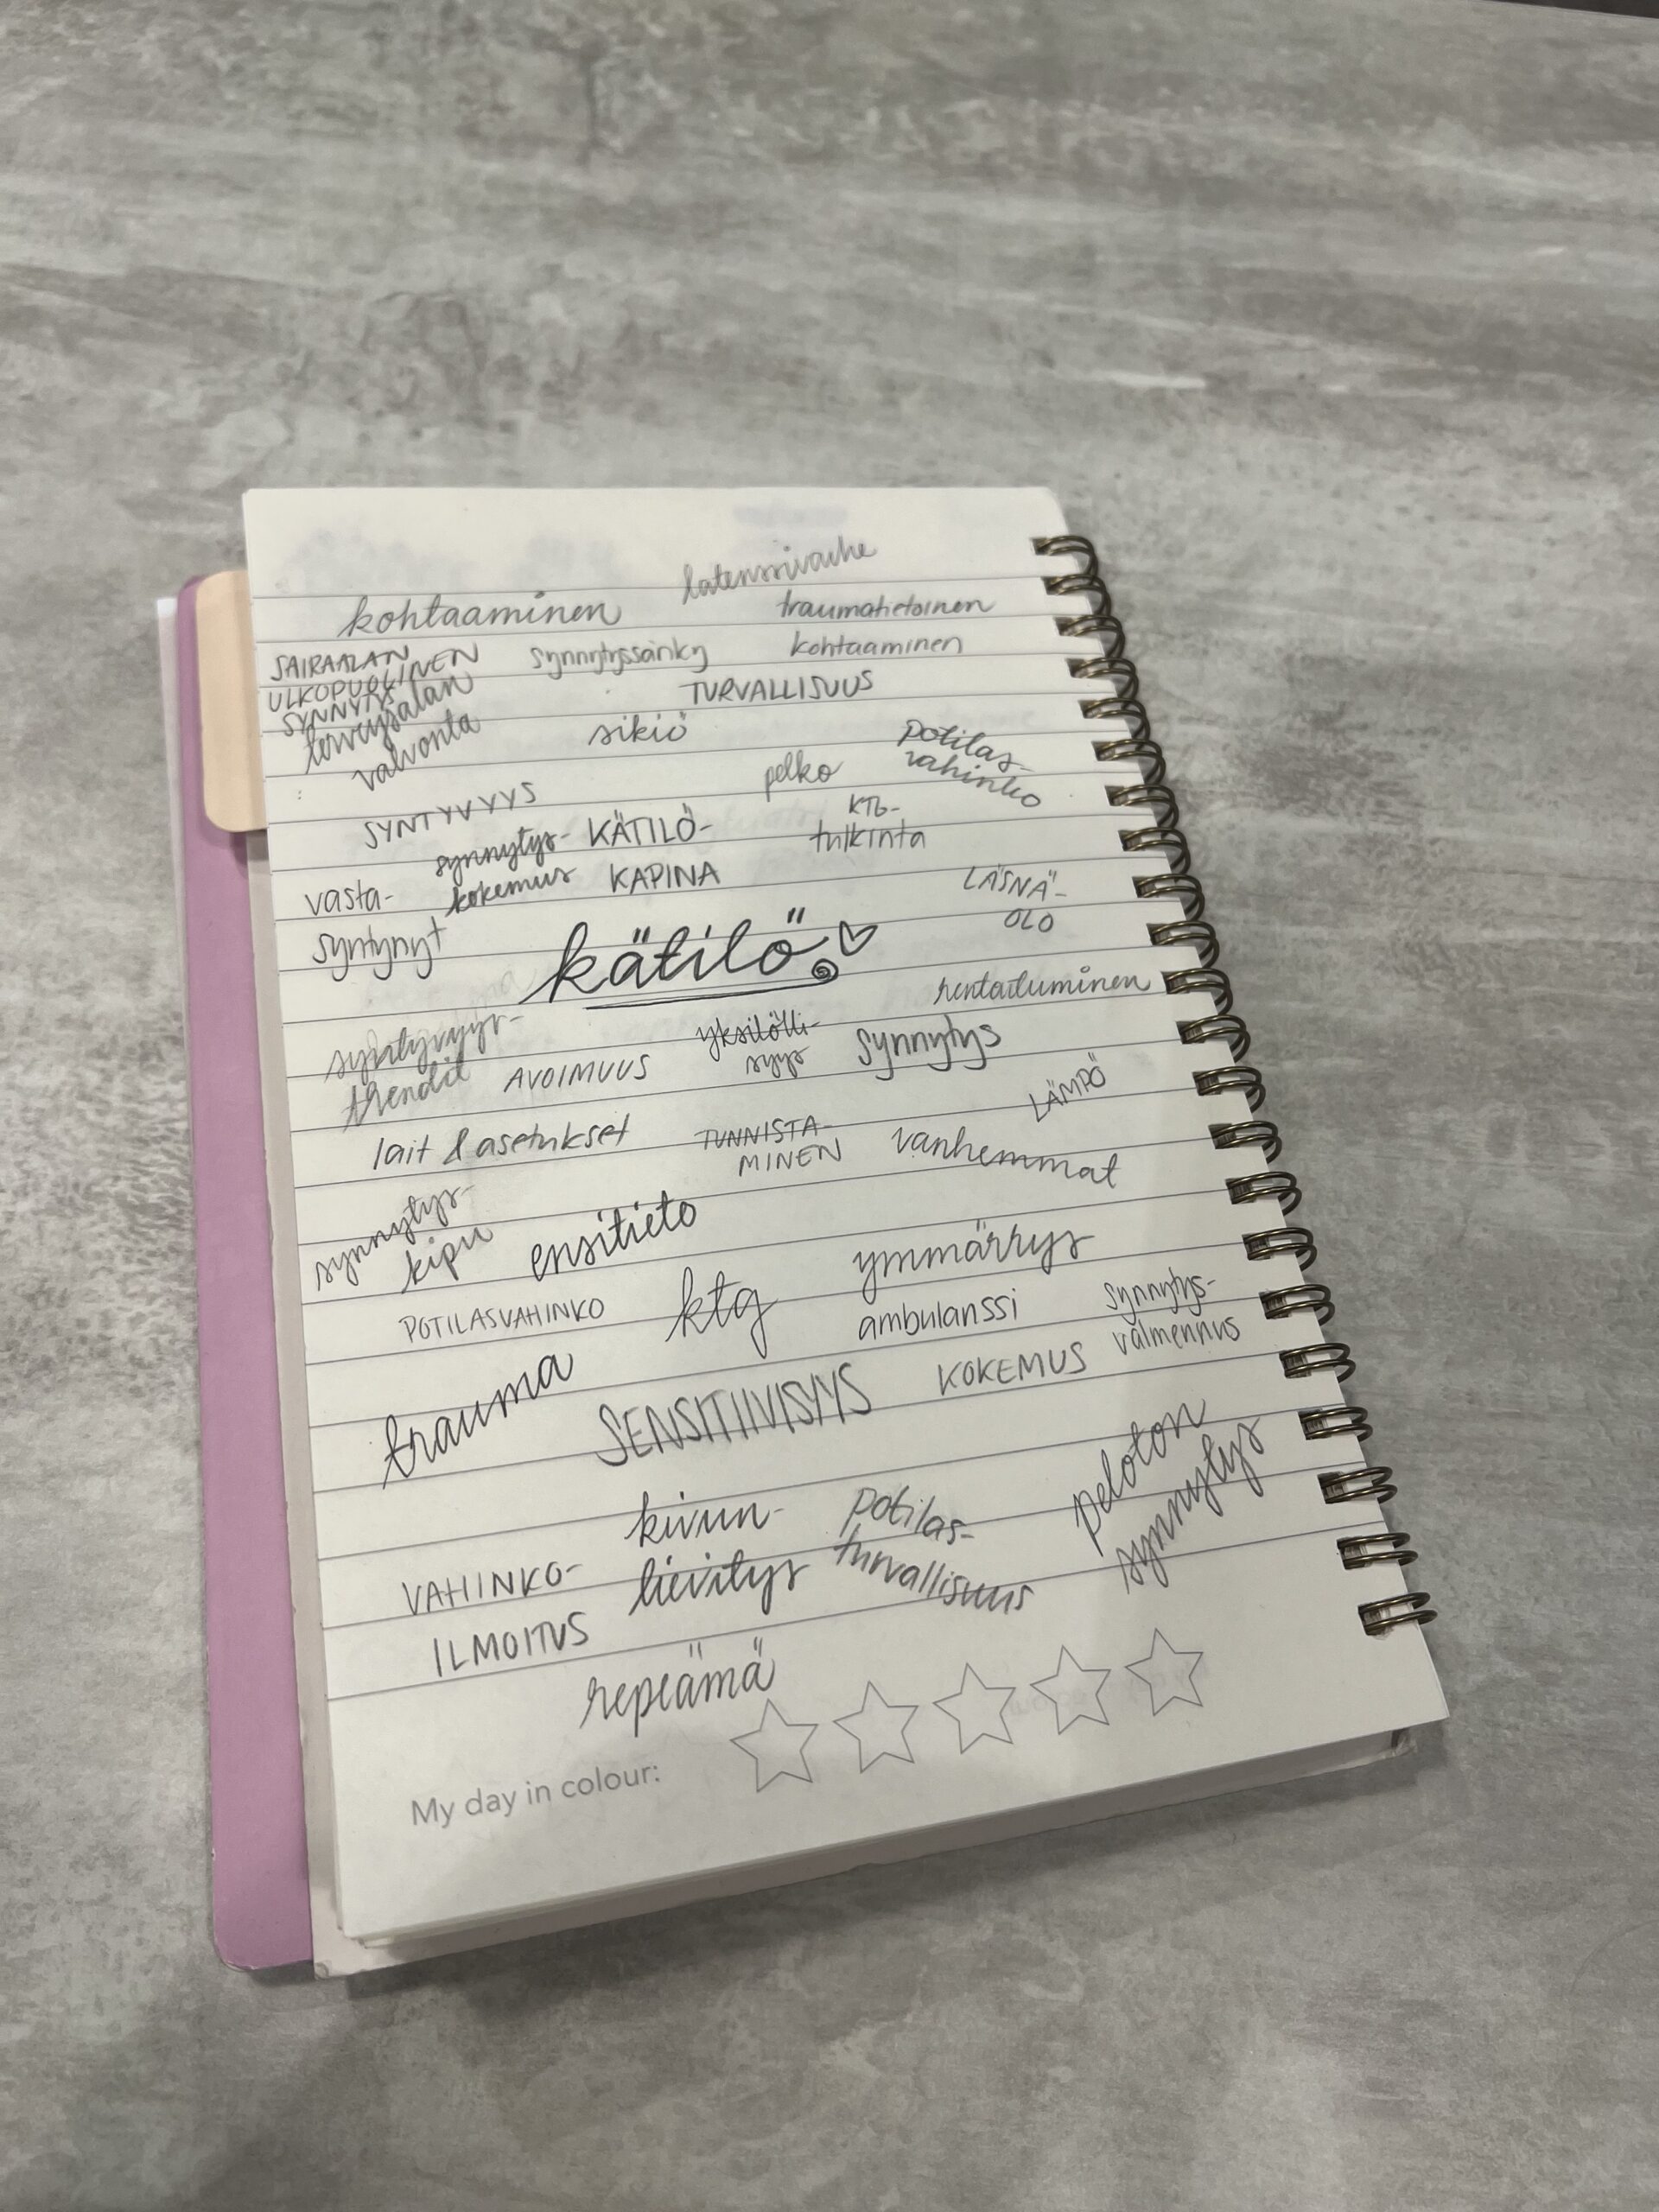 latenssivaihe
kohtaaminen
traumatietoinen
kohtaaminen
SAIRAALAN
ULKOPUOLINEN
SYNNYTYS
synnytyssänky
TURVALLISUUS
terveysalan
valvonta
sikiö
pelko
potilas-
vahinko
SYNTYVYYS
synnytys-
kokemus
KÄTILÖ-
KAPINA
KTG-
tulkinta
vasta-
syntynyt
LÄSNÄ-
OLO
kätilö
rentoutuminen
syntyvyys-
trendit
AVOIMUUS
yksilölli-
syys
synnytys
LÄMPÖ
lait & asetukset
TUNNISTA-
MINEN
vanhemmat
synnytys-
kipu
ensitieto
ymmärrys
POTILASVAHINKO
ktg
ambulanssi
synnytys-
valmennus
trauma
SENSITIIVISYYS
KOKEMUS
peloton
synnytys
kivun-
lievitys
potilas-
turvallisuus
VAHINKO-
ILMOITUS
repeämä
My day in colour: